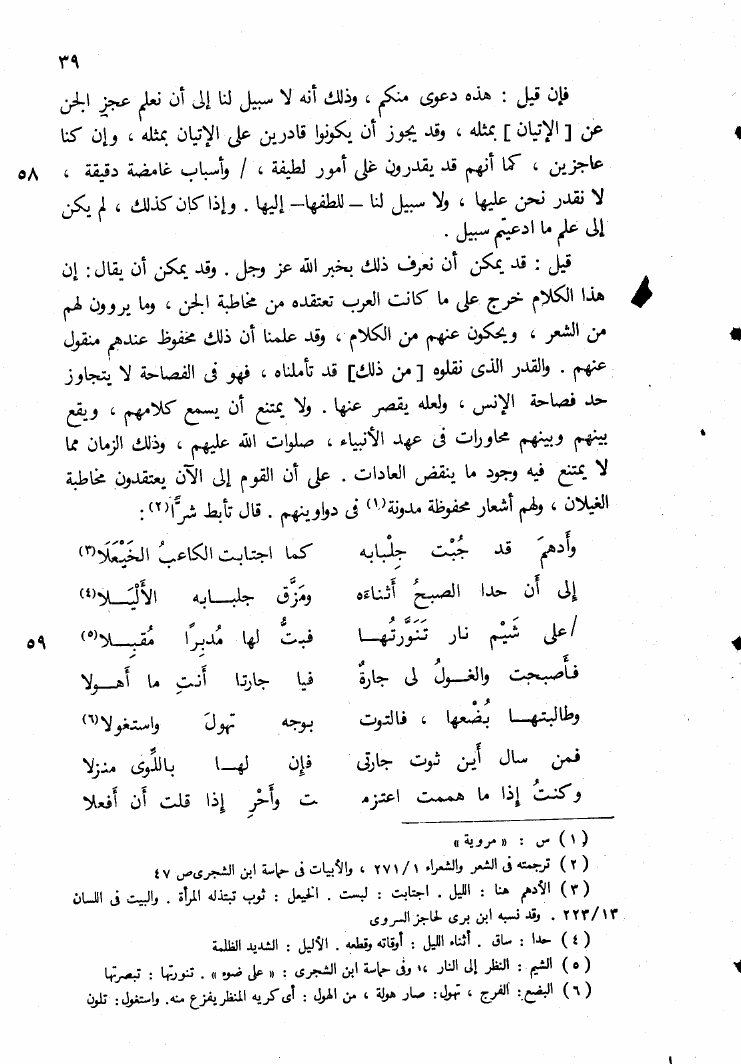 ٣٩
فإن قيل : هذه دعوى منكم ، وذلك أنه لا سبيل لنا إلى أن نعلم عجز الجن
عن [ الإتيان ] بمثله ، وقد يجوز أن يكونوا قادرين على الإتيان بمثله ، وإن كنا
عاجزين ، كما أنهم قد يقدرون على أمور لطيفة ، / وأسباب غامضة دقيقة ،
٥٨
لا نقدر نحن عليها ، ولا سبيل لنا – للطفها– إليها . وإذا كان كذلك ، لم يكن
إلى علم ما ادعيتم سبيل .
قيل : قد يمكن أن نعرف ذلك بخبر الله عز وجل . وقد يمكن أن يقال : إن
هذا الكلام خرج على ما كانت العرب تعتقده من مخاطبة الجن ، وما يروون لهم
من الشعر ، ويحكون عنهم من الكلام ، وقد علمنا أن ذلك محفوظ عندهم منقول
عنهم . والقدر الذى نقلوه [ من ذلك] قد تأملناه ، فهو فى الفصاحة لا يتجاوز
حد فصاحة الإنس ، ولعله يقصر عنها . ولا يمتنع أن يسمع كلامهم ، ويقع
بينهم وبينهم محاورات فى عهد الأنبياء ، صلوات الله عليهم ، وذلك الزمان مما
لا يمتنع فيه وجود ما ينقض العادات . على أن القوم إلى الآن يعتقدون مخاطبة
الغيلان ، ولهم أشعار محفوظة مدونة(١) فى دواوينهم . قال تأبط شرًّا(٢) :
وأدهمَ قد جُبْت جِلْبابه كما اجتابت الكاعبُ الخَيْعَلَا(٣)
إلى أن حدا الصبحُ أثناءَه ومَزَّق جلبابه الأَلْيَلا(٤)
/على شَيْم نار تَنَوَّرتُها فبتُّ لها مُدبِرًا مُقبِلا(٥)
٥٩
فأَصبحت والغولُ لى جارةٌ فيا جارتا أَنتِ ما أَهولا
وطالبتها بُضْعها ، فالتوت بوجه تهولَ واستغولا(٦)
فمن سال أَين ثوت جارتى فإِن لها باللِّوى منزلا
وكنتُ إذا ما هممت اعتزمـ ـت وأَحْرِ إِذا قلت أن أفعلا
(١) س : « مروية »
(٢) ترجمته فى الشعر والشعراء ٢٧١/١ ، والأبيات فى حماسة ابن الشجرى ص ٤٧
(٣) الأدهم هنا : الليل . اجتابت : لبست . الخيعل : ثوب تبتذله المرأة . والبيت فى اللسان
٢٢٣/١٣ . وقد نسبه ابن برى لحاجز السروى
(٤) حدا : ساق . أثناء الليل : أوقاته وقطعه . الأليل : الشديد الظلمة
(٥) الشيم : النظر إلى النار ، وفى حماسة ابن الشجرى : « على ضوه » . تنورتها : تبصرتها
(٦) البضع : الفرج ، تهول : صار هولة ، من الهول : أى كريه المنظر يفزع منه. واستغول : تلون